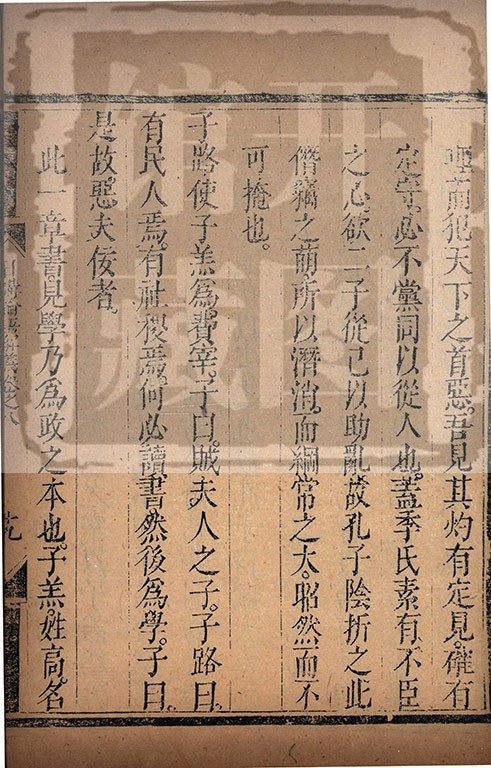 理而犯天下之首惡吾見其灼有定見確有
定守必不黨詞以從人也蓋季氏素有不臣
之心欲二子從己以助亂故孔子陰折之此
僭竊之萌所以潛消而綱常之大昭然而不
可掩也
子路使子羔為費宰子曰賊夫人之子子路曰
有民人焉有社稷焉何必讀書然後為學子曰
是故惡夫佞者
此一章書見學乃為政之本也子羔姓高名
十九